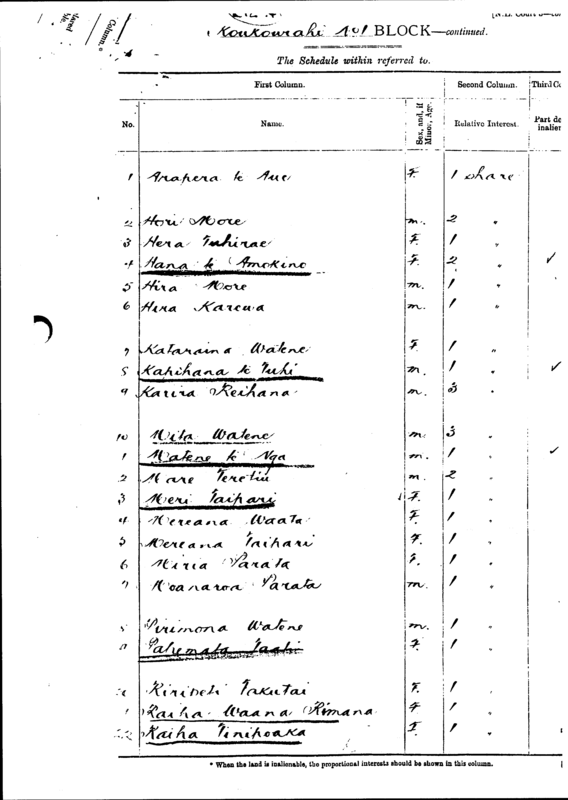 Koukourahi No1 BLOCK—continued.
The Schedule within referred to.
First Column. Second Column.
No. Name. Sex, and, if Minor, Age. Relative Interest. Part
1 Arapera te Aue F. 1 share
2 Hori More m. 2 "
3 Hera Tuhirae F. 1 "
4 Hana te Amokino F. 2 " ✓
5 Hira More m. 1 "
6 Hera Karewa m. 1 "
7 Kataraina Watene F. 1 "
8 Kahihana te Tuhi m. 1 " ✓
9 Karira Reihana m. 3 "
10 Mita Watene m. 3 "
1 Matene te Nga m. 1 " ✓
2 Mare Teretiu m. 2 "
3 Meri Taipari F. 1 "
4 Mereana Waata F. 1 "
5 Mereana Taipari F. 1 "
6 Miria Parata F. 1 "
7 Moanaroa Parata m. 1 "
8 Pirimona Watene m. 1 "
9 Pahemata Taahi F. 1 "
Riripeti Takutai F. 1 "
1 Raiha Waana Rimana F 1 "
22 Raiha Tinipoaka F. 1 "
* When the land is inalienable, the proportional interests should be shown in this column.